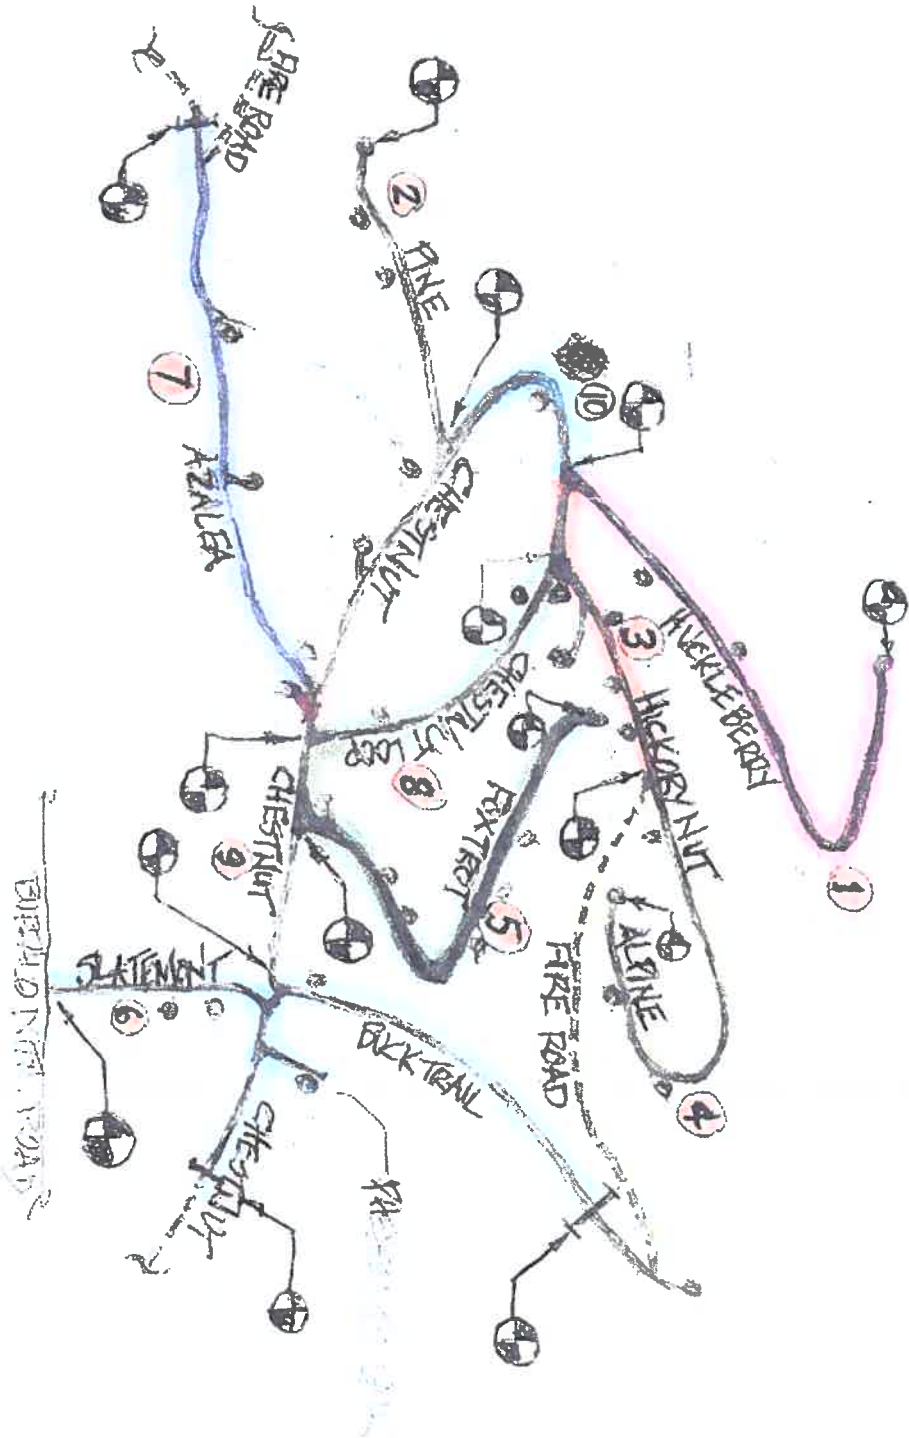 FIRE ROAD
2
PINE
7
AZALEA
10
CHESTNUT
HUCKLEBERRY
1
3
HICKORY NUT
CHESTNUT LOOP
8
FOXTROT
5
CHESTNUT
9
ALPINE
4
FIRE ROAD
SLATEMONT
6
BUCK TRAIL
CHESTNUT
ROAD